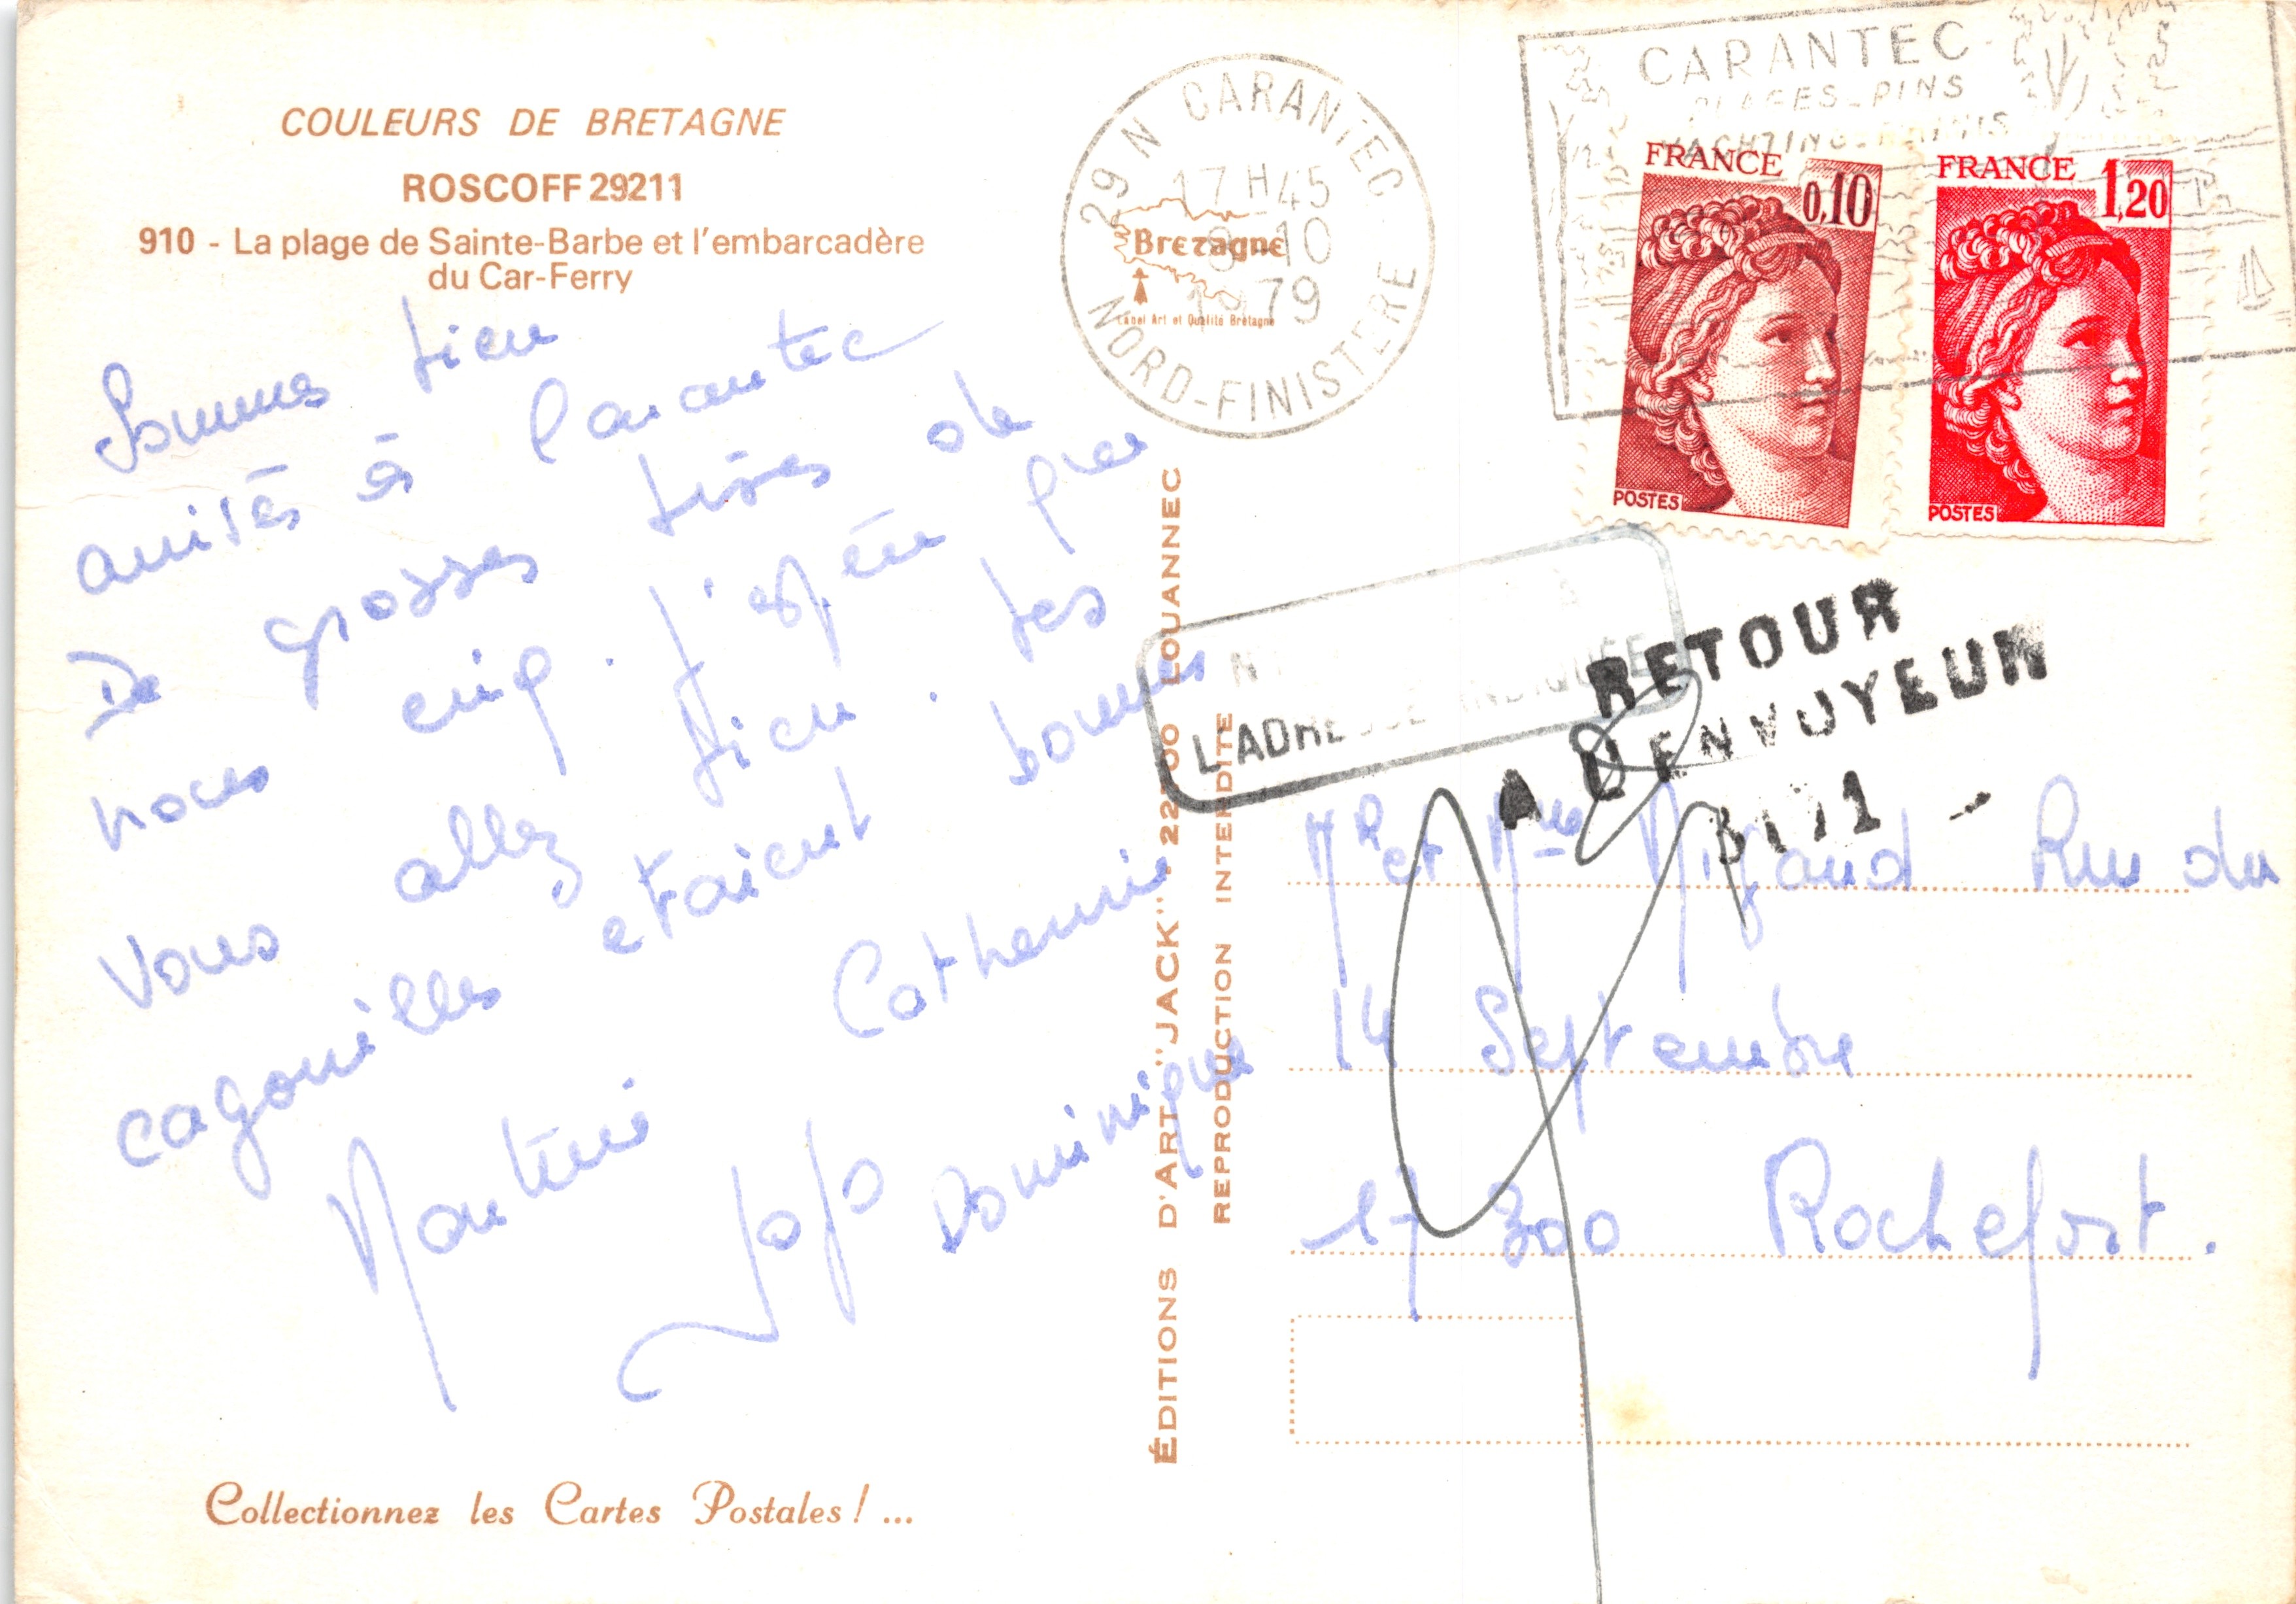 COULEURS DE BRETAGNE
ROSCOFF 29211
910 - La plage de Sainte-Barbe et l'embarcadère
du Car-Ferry
Sommes bien
arrivés à Carantec
De grosses bises de
nous cinq. J'espère que
vous allez bien. Les
cagouilles etaient bonnes
Catherine
Dominique
Collectionnez les Cartes Postales ! ...
ÉDITIONS D'ART "JACK" LOUANNEC
REPRODUCTION INTERDITE
29 N CARANTEC
17 H 45
10
1979
NORD-FINISTERE
Bretagne
Label Art et Qualité Bretagne
CARANTEC
PLAGES_PINS
YACHTING_TENNIS
FRANCE 0,10
POSTES
FRANCE 1,20
POSTES
L'ADRESSE INDIQUÉE
RETOUR
A L'ENVOYEUR
Mr et Mme Rue du
14 Septembre
17300 Rochefort.